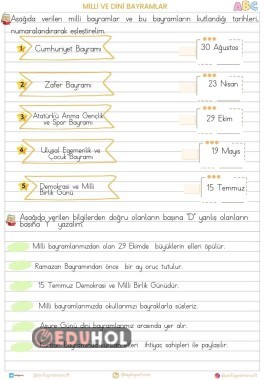 MİLLİ VE DİNİ BAYRAMLAR
ABC
Aşağıda verilen milli bayramlar ve bu bayramların kutlandığı tarihleri,
numaralandırarak eşleştirelim.
1 Cumhuriyet Bayramı
30 Ağustos
2 Zafer Bayramı
23 Nisan
3 Atatürkü Anma Gençlik
ve Spor Bayramı
29 Ekim
4 Ulusal Egemenlik ve
Çocuk Bayramı
19 Mayıs
5 Demokrasi ve Milli
Birlik Günü
15 Temmuz
Aşağıda verilen bilgilerden doğru olanların başına "D" yanlış olanların
başına "Y" yazalım.
Milli bayramlarımızdan olan 29 Ekimde büyüklerin elleri öpülür.
Ramazan Bayramından önce bir ay oruç tutulur.
15 Temmuz Demokrasi ve Milli Birlik Günüdür.
Milli bayramlarımızda okullarımızı bayraklarla süsleriz.
Aşure Günü dini bayramlarımız arasında yer alır.
ihtiyaç sahipleri ile paylaşılır.
EDUHOL